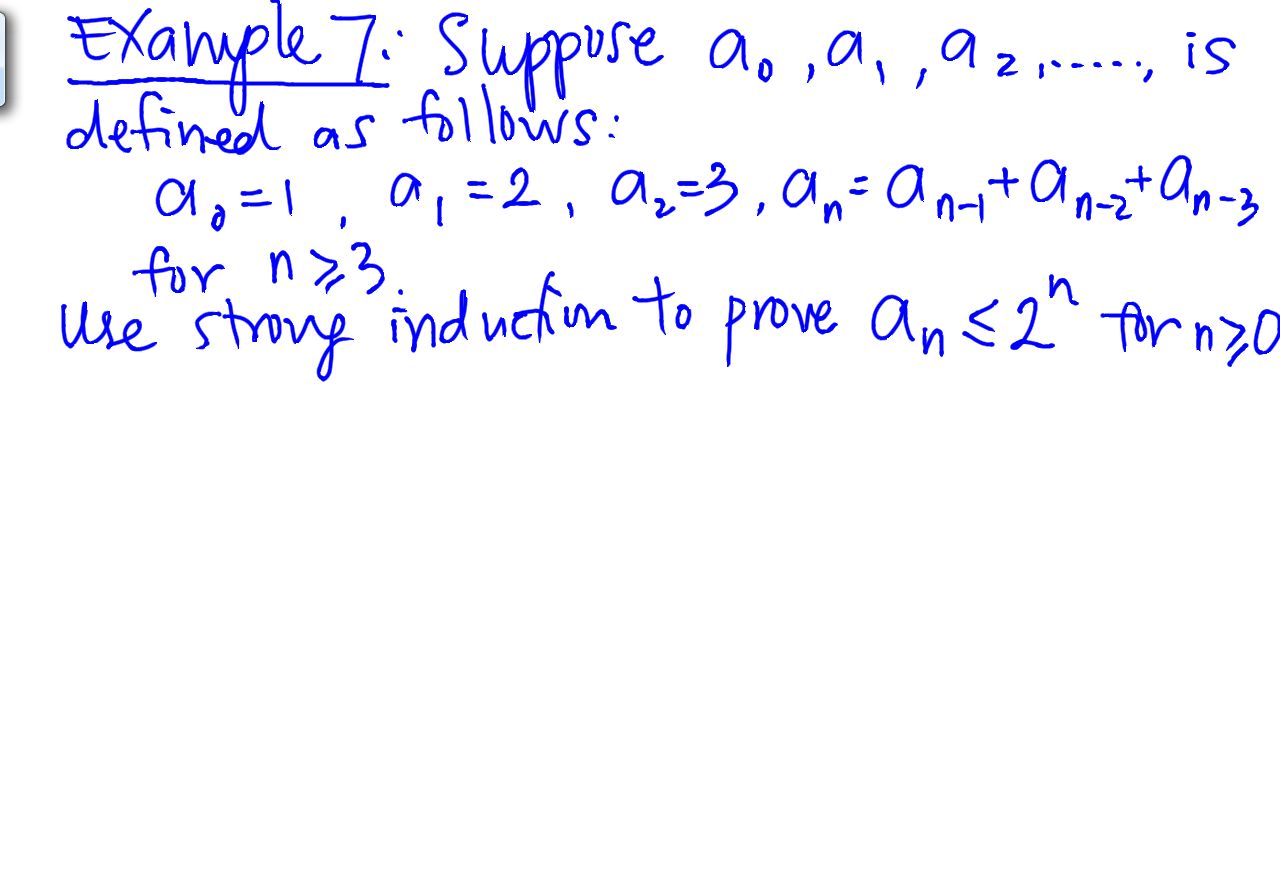 Example 7: Suppose a₀, a₁, a₂, ....., is
defined as follows:
a₀=1, a₁=2, a₂=3, aₙ=aₙ₋₁+aₙ₋₂+aₙ₋₃
for n≥3.
Use strong induction to prove aₙ≤2ⁿ for n≥0